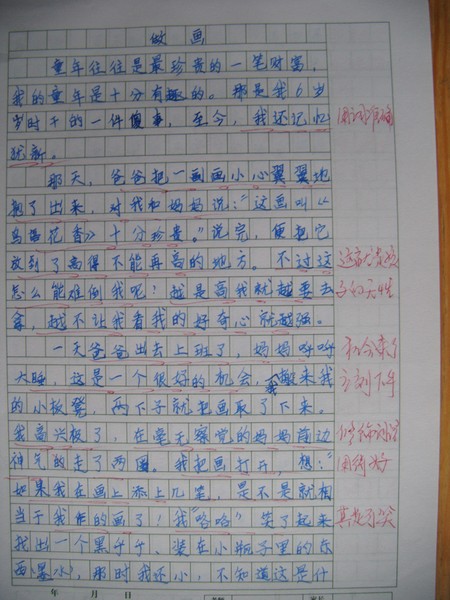 做画
童年往往是最珍贵的一笔财富,
我的童年是十分有趣的。那是我6岁
岁时干的一件傻事,至今,我还记忆
犹新。
那天,爸爸把一副画小心翼翼地
拿了出来,对我和妈妈说:“这画叫《
鸟语花香》十分珍贵。”说完,便把它
放到了高得不能再高的地方。不过这
怎么能难倒我呢!越是高我就越要去
拿,越不让我看我的好奇心就越强。
一天爸爸出去上班了,妈妈呼呼
大睡,这是一个很好的机会,搬来我
的小板凳,两下子就把画取了下来。
我高兴极了,在毫无察觉的妈妈前边
神气的走了两圈。我把画打开,想:“
如果我在画上添上几笔,是不是就相
当于我作的画了!我“咯咯”笑了起来
找出一个黑千千、装在小瓶子里的东
西(墨水),那时我还小,不知道这是什
用词准确
这富
子的天性
机会来了
立刻下手
用得好
年 月 日